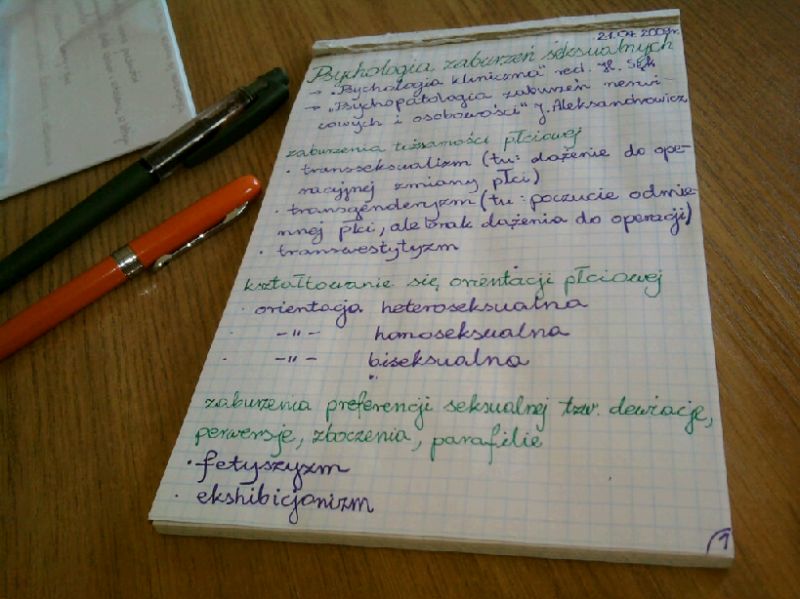 21.04.2009r.
Psychologia zaburzeń seksualnych
→ "Psychologia kliniczna" red. H. Sęk
→ "Psychopatologia zaburzeń nerwi-
cowych i osobowości" J. Aleksandrowicz
zaburzenia tożsamości płciowej
· transseksualizm (tu: dążenie do ope-
racyjnej zmiany płci)
· transgenderyzm (tu: poczucie odmie-
nnej płci, ale brak dążenia do operacji)
· transwestytyzm
kształtowanie się orientacji płciowej
· orientacja heteroseksualna
· -"- homoseksualna
· -"- biseksualna
zaburzenia preferencji seksualnej tzw. dewiacje,
perwersje, zboczenia, parafilie
· fetyszyzm
· ekshibicjonizm
1